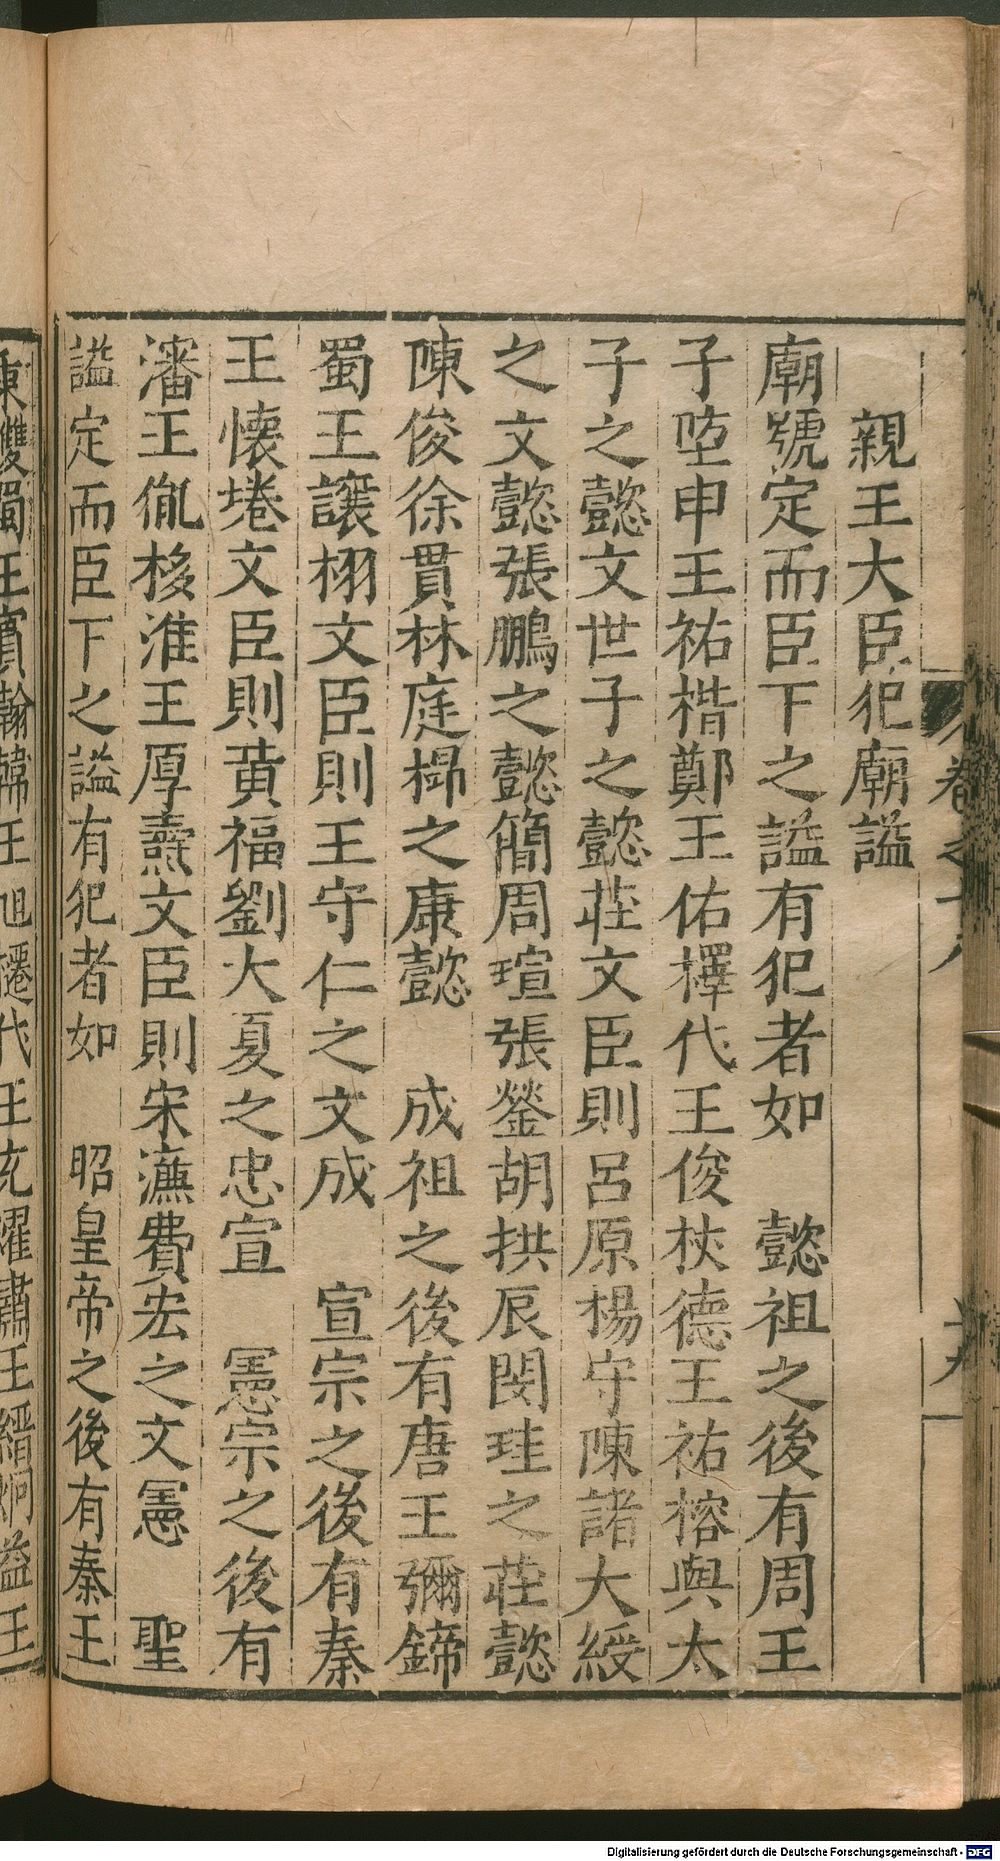 親王大臣犯廟諡
廟號定而臣下之諡有犯者如　懿祖之後有周王
子埅申王祐楷鄭王佑檡代王俊杖德王祐榕與太
子之懿文世子之懿莊文臣則呂原楊守陳諸大綬
之文懿張鵬之懿簡周瑄張鎣胡拱辰閔珪之莊懿
陳俊徐貫林庭㭿之康懿　成祖之後有唐王彌鍗
蜀王讓栩文臣則王守仁之文成　宣宗之後有秦
王懷埢文臣則黃福劉大夏之忠宣　憲宗之後有
瀋王胤栘淮王厚燾文臣則宋濂費宏之文憲　聖
諡定而臣下之諡有犯者如　昭皇帝之後有秦王
秉欆蜀王賓瀚韓王旭櫏代王充燿肅王縉炯諡王
卷之十九
十九
Digitalisierung gefördert durch die Deutsche Forschungsgemeinschaft - DFG